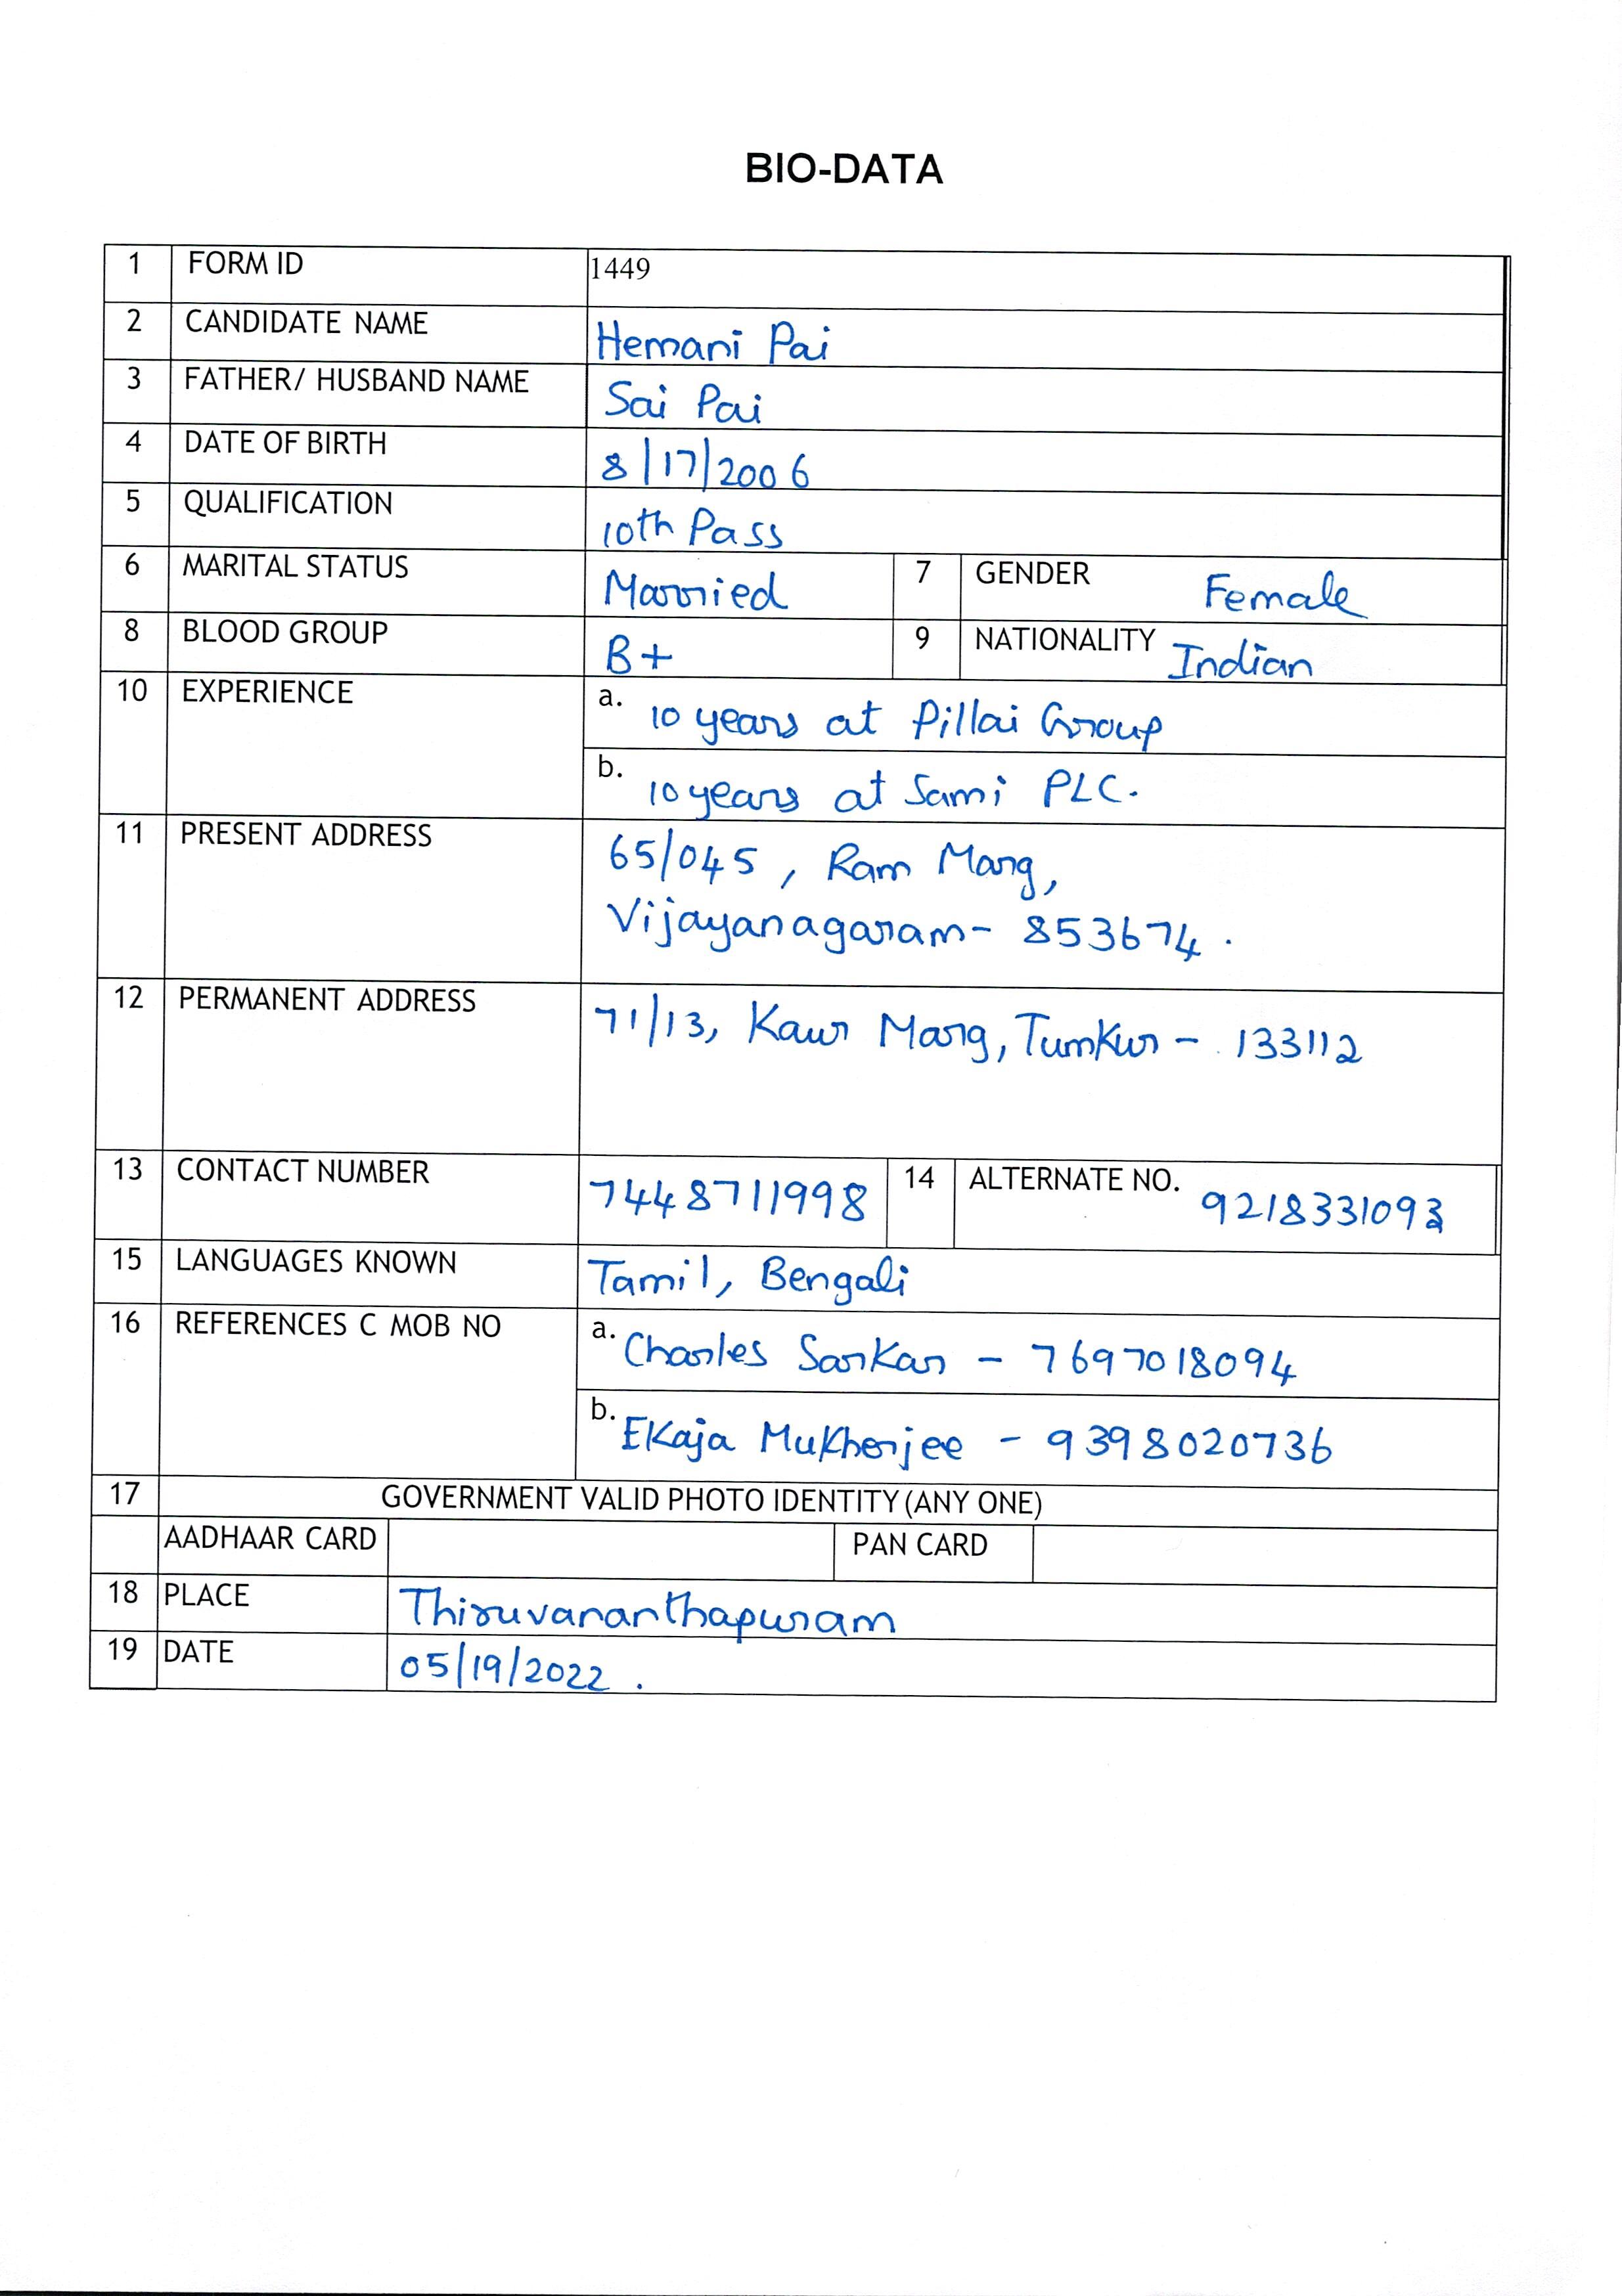 BIO-DATA
1 FORM ID 1449
2 CANDIDATE NAME Hemani Pai
3 FATHER/ HUSBAND NAME Sai Pai
4 DATE OF BIRTH 8/17/2006
5 QUALIFICATION 10th Pass
6 MARITAL STATUS Married 7 GENDER Female
8 BLOOD GROUP B+ 9 NATIONALITY Indian
10 EXPERIENCE a. 10 years at Pillai Group
b. 10 years at Sami PLC.
11 PRESENT ADDRESS 65/045, Ram Marg,
Vijayanagaram- 853674.
12 PERMANENT ADDRESS 71/13, Kaur Marg, Tumkur - 133112
13 CONTACT NUMBER 7448711998 14 ALTERNATE NO. 9218331093
15 LANGUAGES KNOWN Tamil, Bengali
16 REFERENCES C MOB NO a. Charles Sarkar - 7697018094
b. Ekaja Mukherjee - 9398020736
17 GOVERNMENT VALID PHOTO IDENTITY (ANY ONE)
AADHAAR CARD PAN CARD
18 PLACE Thiruvananthapuram
19 DATE 05/19/2022.